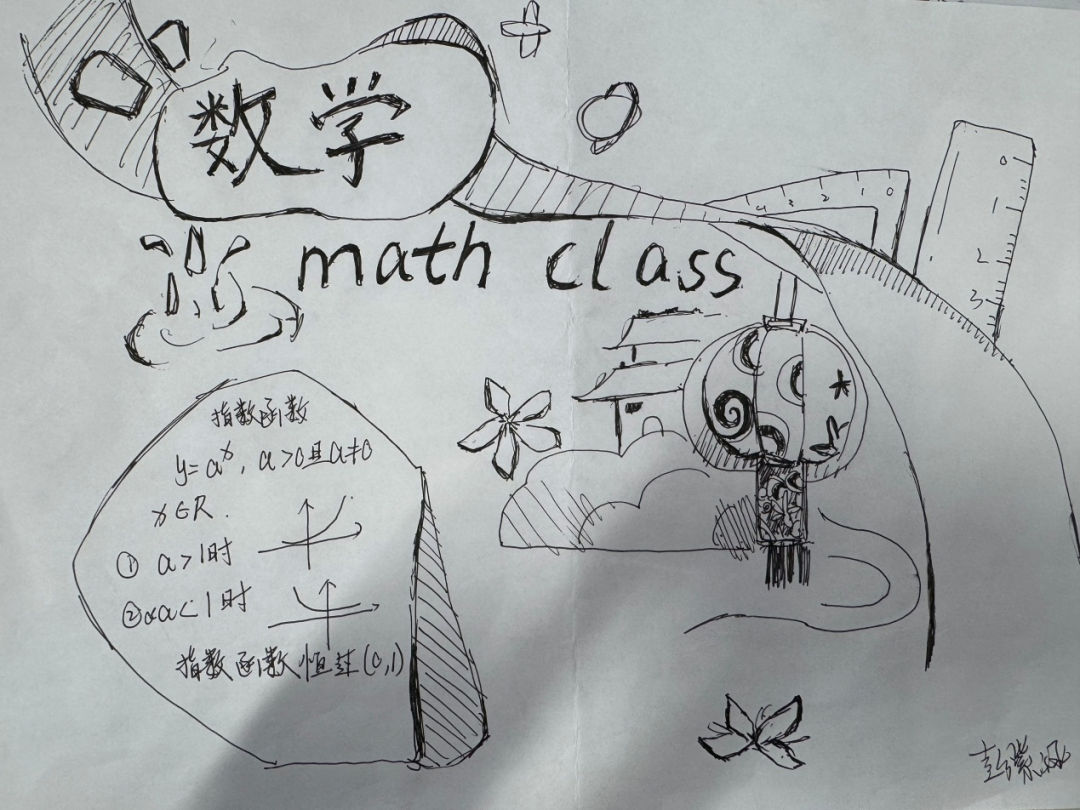 数学
math class
4 3 2 1 0
0
1
2
3
指数函数
y=aˣ, a>0且a≠0
x∈R.
① a>1时
②0<a<1时
指数函数恒过(0,1)